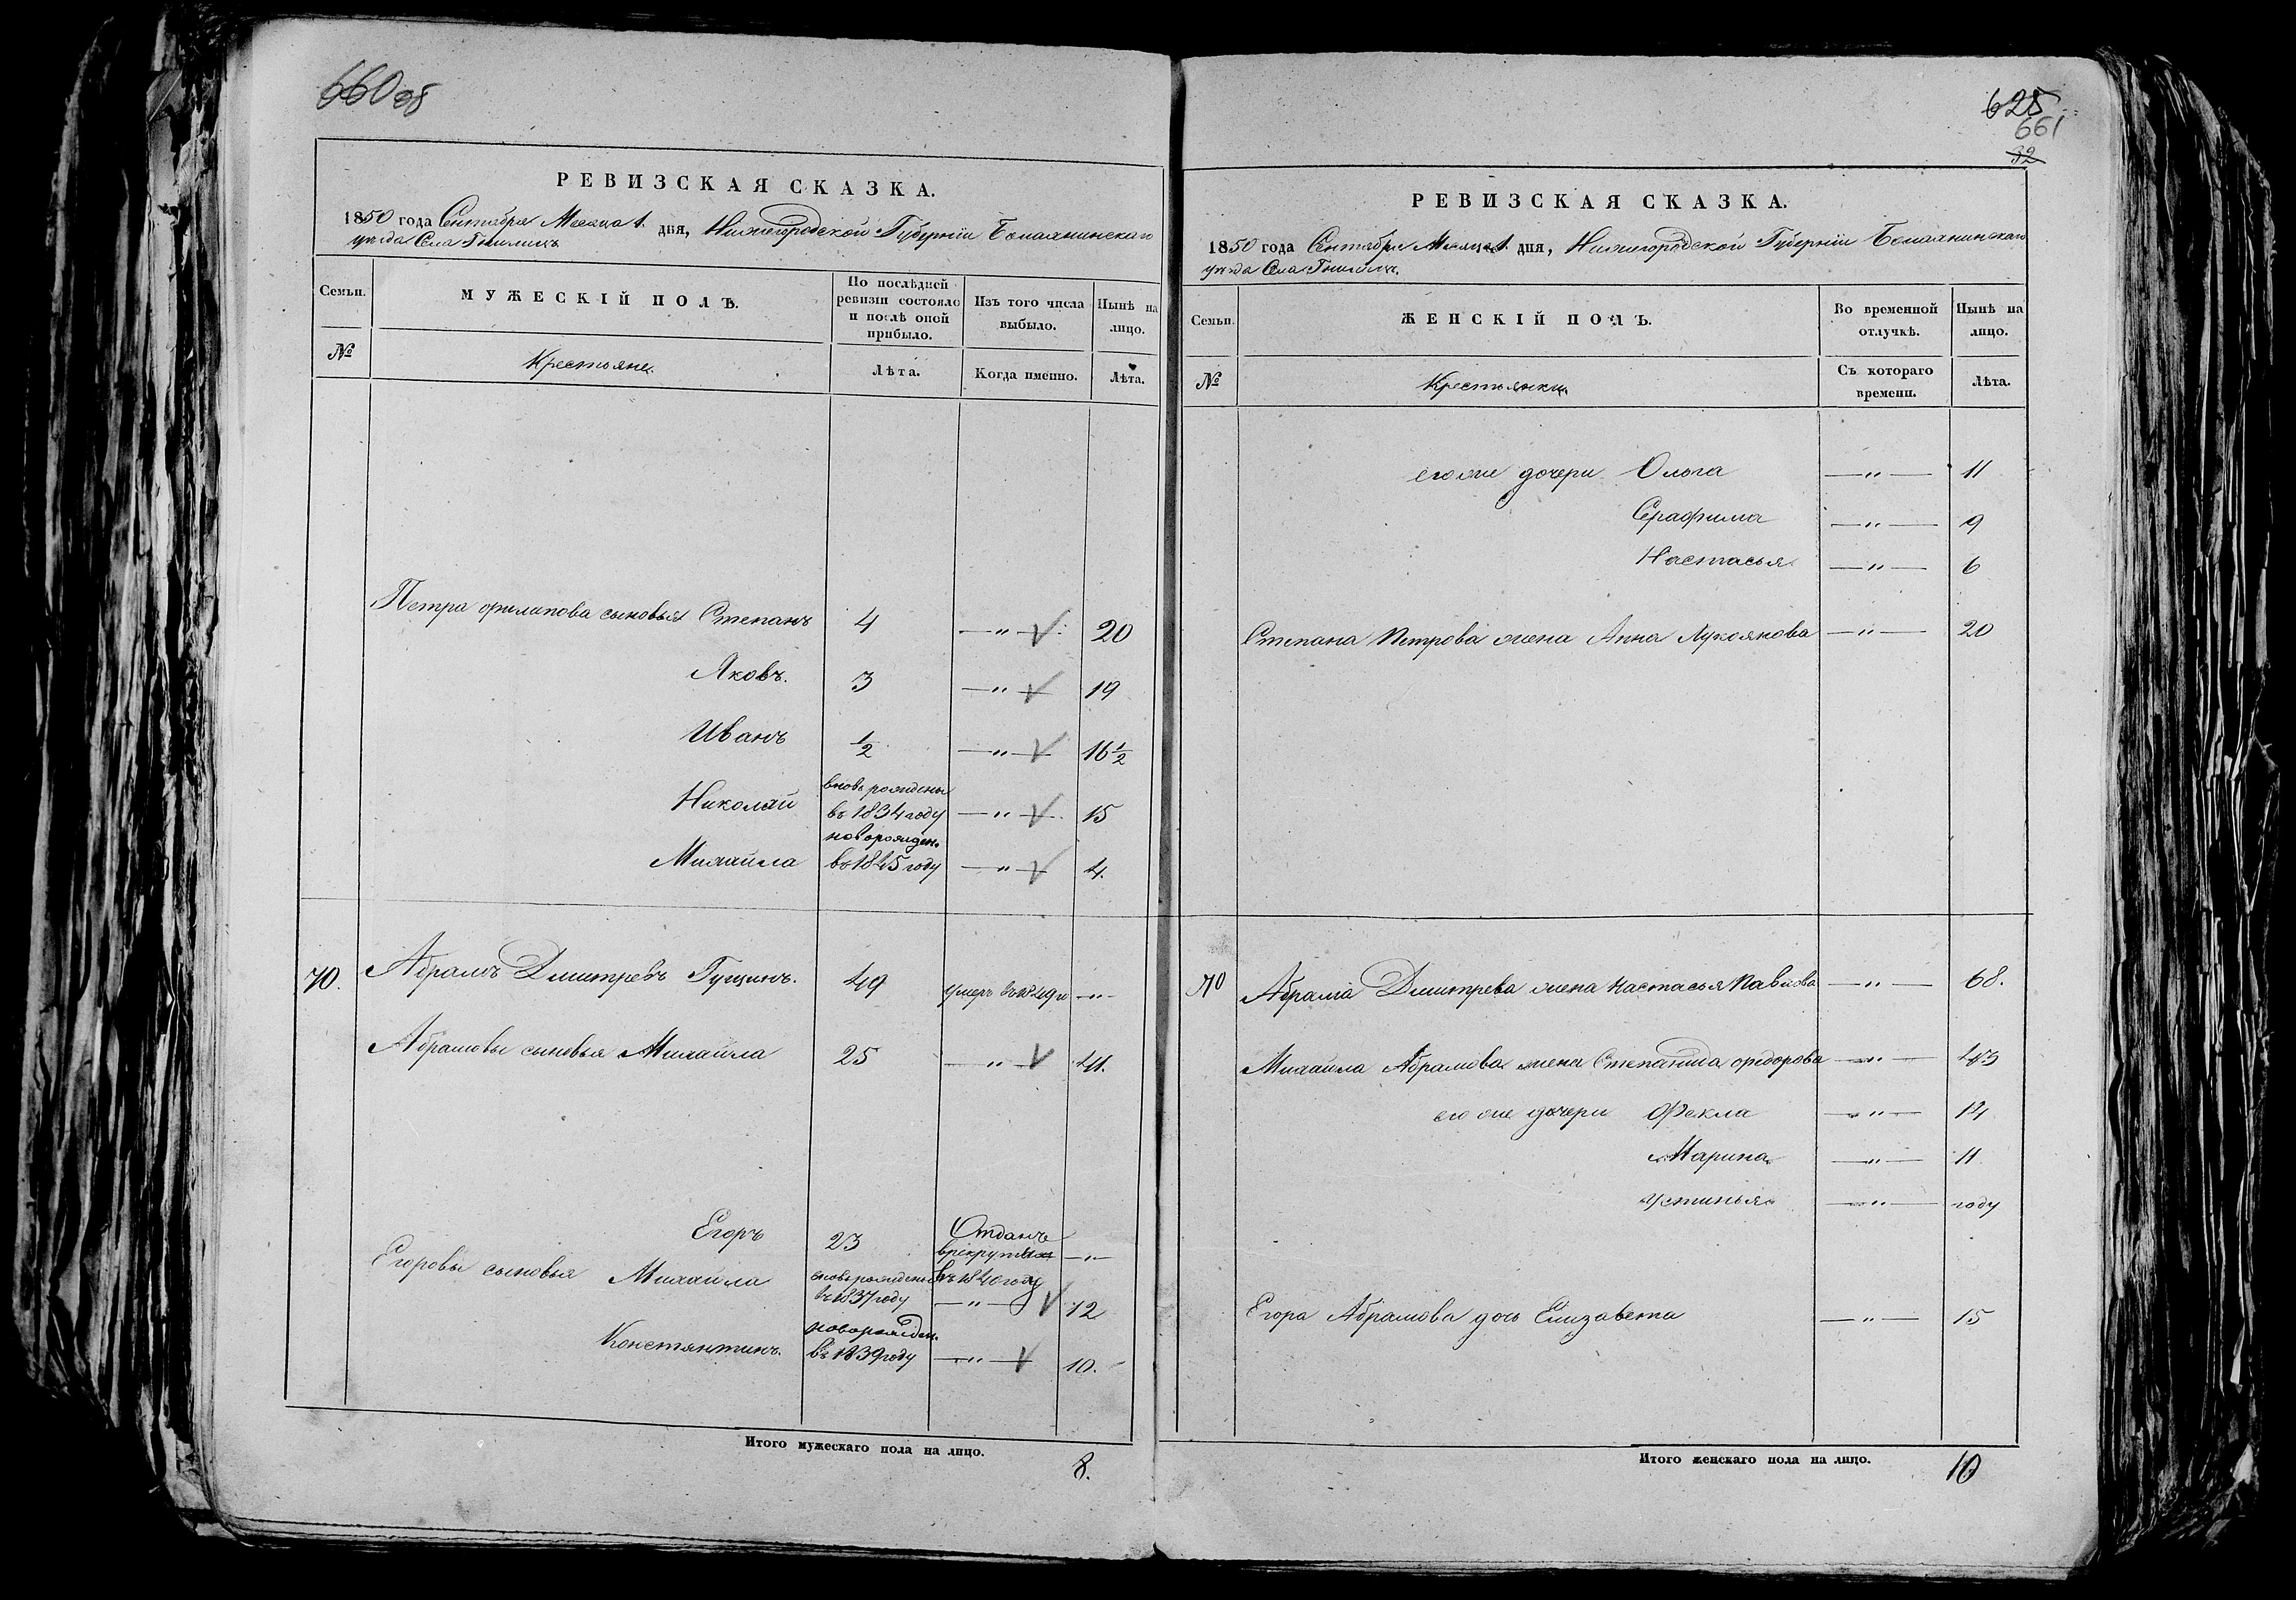 660 об
РЕВИЗСКАЯ СКАЗКА.
1850 года Сентября Месяца 1. дня, Нижегородской Губернiи Балахнинскаго
уѣзда Села Гнилицъ
Семьи.
МУЖЕСКIЙ ПОЛЪ.
По послѣдней ревизiи состояло и послѣ оной прибыло.
Изъ того числа выбыло.
Нынѣ на лицо.
№
Крестьяне.
Лѣта.
Когда именно.
Лѣта.
Петра филипова сыновья Степанъ 4 —"— 20
Яковъ. 3 —"— 19
Иванъ ½ —"— 16½
Николай вновь рожденъ въ 1834 году —"— 15
Михайла новорожден. въ 1845 году —"— 4.
70. Абрамъ Дмитревъ Гущинъ. 49 умеръ въ 1849 г —"—
Абрамовы сыновья Михайла 25 —"— 41.
Егоръ 23 Отданъ в рекруты въ 1840 году —"—
Егоровы сыновья Михайла вновь рожденъ въ 1837 году —"— 12
Констянтинъ. новорожден. въ 1839 году —"— 10.
Итого мужескаго пола на лицо. 8.
625
661
32
РЕВИЗСКАЯ СКАЗКА.
1850 года Сентября Месяца 1. дня, Нижегородской Губернiи Балахнинскаго
уѣзда Села Гнилицъ.
Семьи.
ЖЕНСКIЙ ПОЛЪ.
Во временной отлучкѣ.
Нынѣ на лицо.
№
Крестьянки.
Съ котораго времени.
Лѣта.
его же дочери Ольга —"— 11
Серафима —"— 9
Настасья —"— 6
Степана Петрова жена Анна Лукоянова —"— 20
70 Абрама Дмитрева жена Настасья Павлова —"— 68.
Михайла Абрамова жена Степанида федорова —"— 43
его же дочери Фекла —"— 14
Марина —"— 11
Устинья —"— году
Егора Абрамова дочь Елизавета —"— 15
Итого женскаго пола на лицо. 10